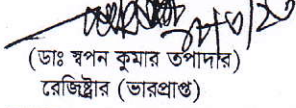 (ডাঃ স্বপন কুমার তপাদার)
রেজিষ্ট্রার (ভারপ্রাপ্ত)